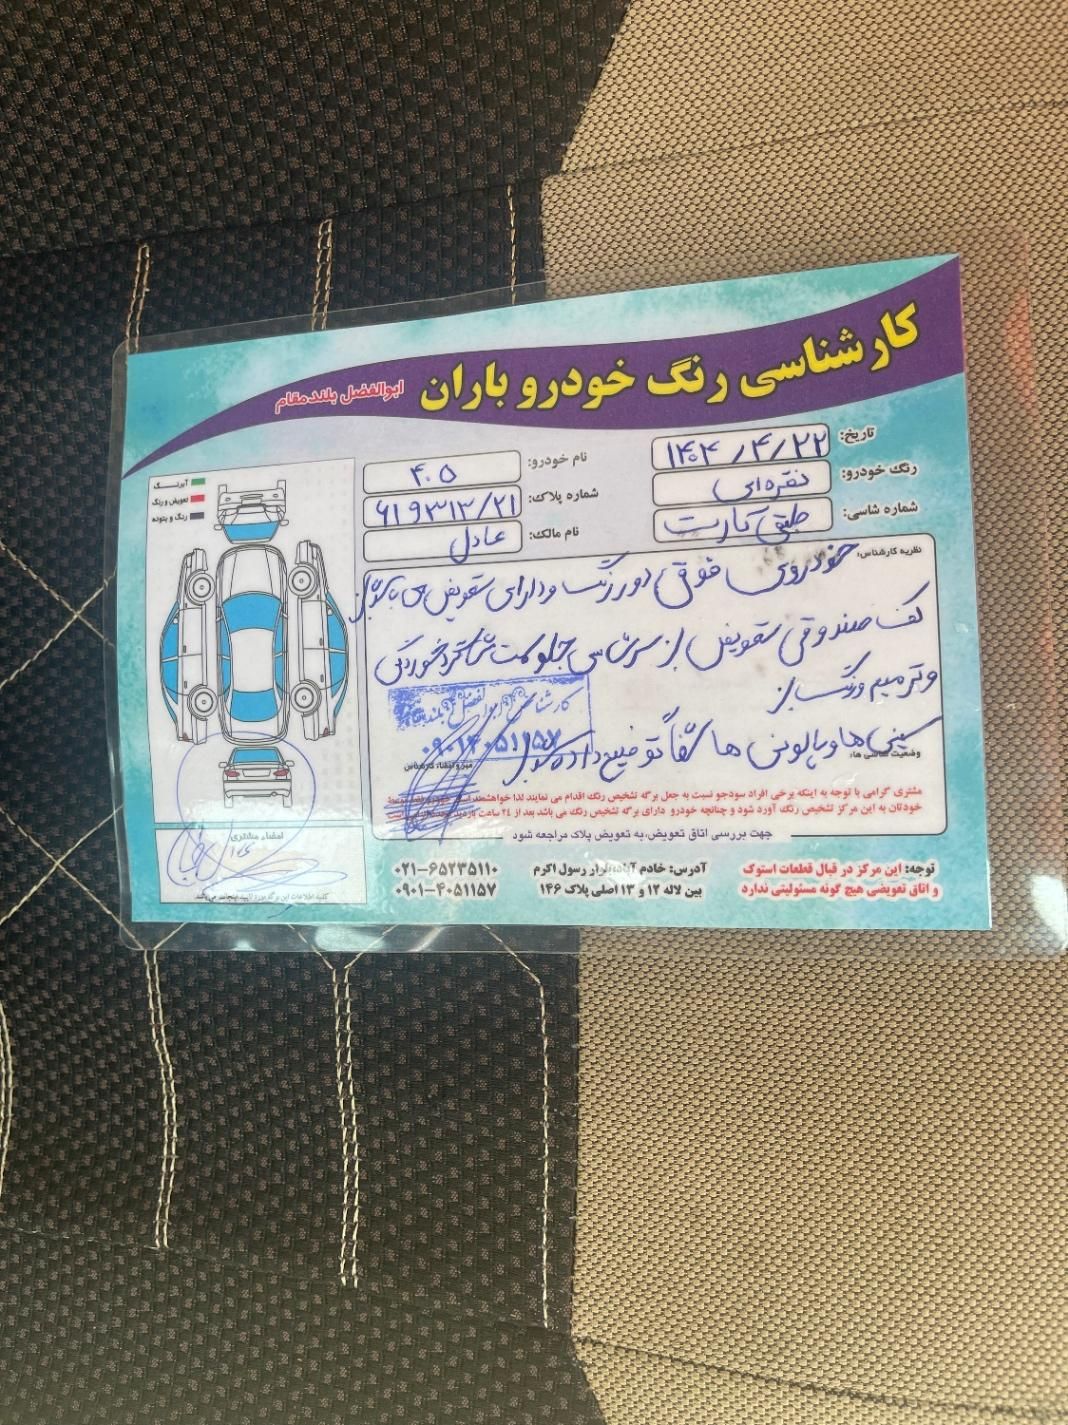 کارشناسی رنگ خودرو باران
ابوالفضل بلندمقام
تاریخ: ۱۴۰۴/۴/۲۲
نام خودرو: ۴۰۵
رنگ خودرو: نقره‌ای
شماره پلاک: ۶۱۹۳۱۳/۲۱
شماره شاسی: طبق کارت
نام مالک: عادل
آبرنگ
تعویض و رنگ
رنگ و بتونه
نظریه کارشناس:
خودروی فوق دور رنگ و دارای تعویض می باشد
کف صندوق تعویض سرشاسی جلو سمت شاگرد خوردگی
و ترمیم و رنگ
سینی ها و پالونی ها شفاً توضیح داده شد
وضعیت شاسی ها:
کارشناسی ابوالفضل بلندمقام
۰۹۰۱۴۰۵۱۱۵۷
مهر و امضاء کارشناس
مشتری گرامی با توجه به اینکه برخی افراد سودجو نسبت به جعل برگه تشخیص رنگ اقدام می نمایند لذا خواهشمند است
خودتان به این مرکز تشخیص رنگ آورد شود و چنانچه خودرو دارای برگه تشخیص رنگ می باشد بعد از ۲۴ ساعت
جهت بررسی اتاق تعویض، به تعویض پلاک مراجعه شود
امضاء مشتری
کلیه اطلاعات این برگه مورد تایید اینجانب می باشد
توجه: این مرکز در قبال قطعات استوک
و اتاق تعویضی هیچ گونه مسئولیتی ندارد
آدرس: خادم آباد، بلوار رسول اکرم
بین لاله ۱۲ و ۱۳ اصلی پلاک ۱۴۶
۰۲۱-۶۵۲۳۵۱۱۰
۰۹۰۱-۴۰۵۱۱۵۷